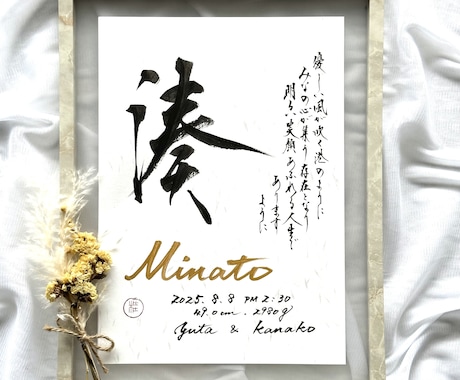 湊
愛しい風が吹く港のように
みなの心が集う存在となり
明るい笑顔あふれる人生で
あります
ように
Minato
2025. 8. 8 PM 2:30
49.0cm. 2980g
yuta & kanako